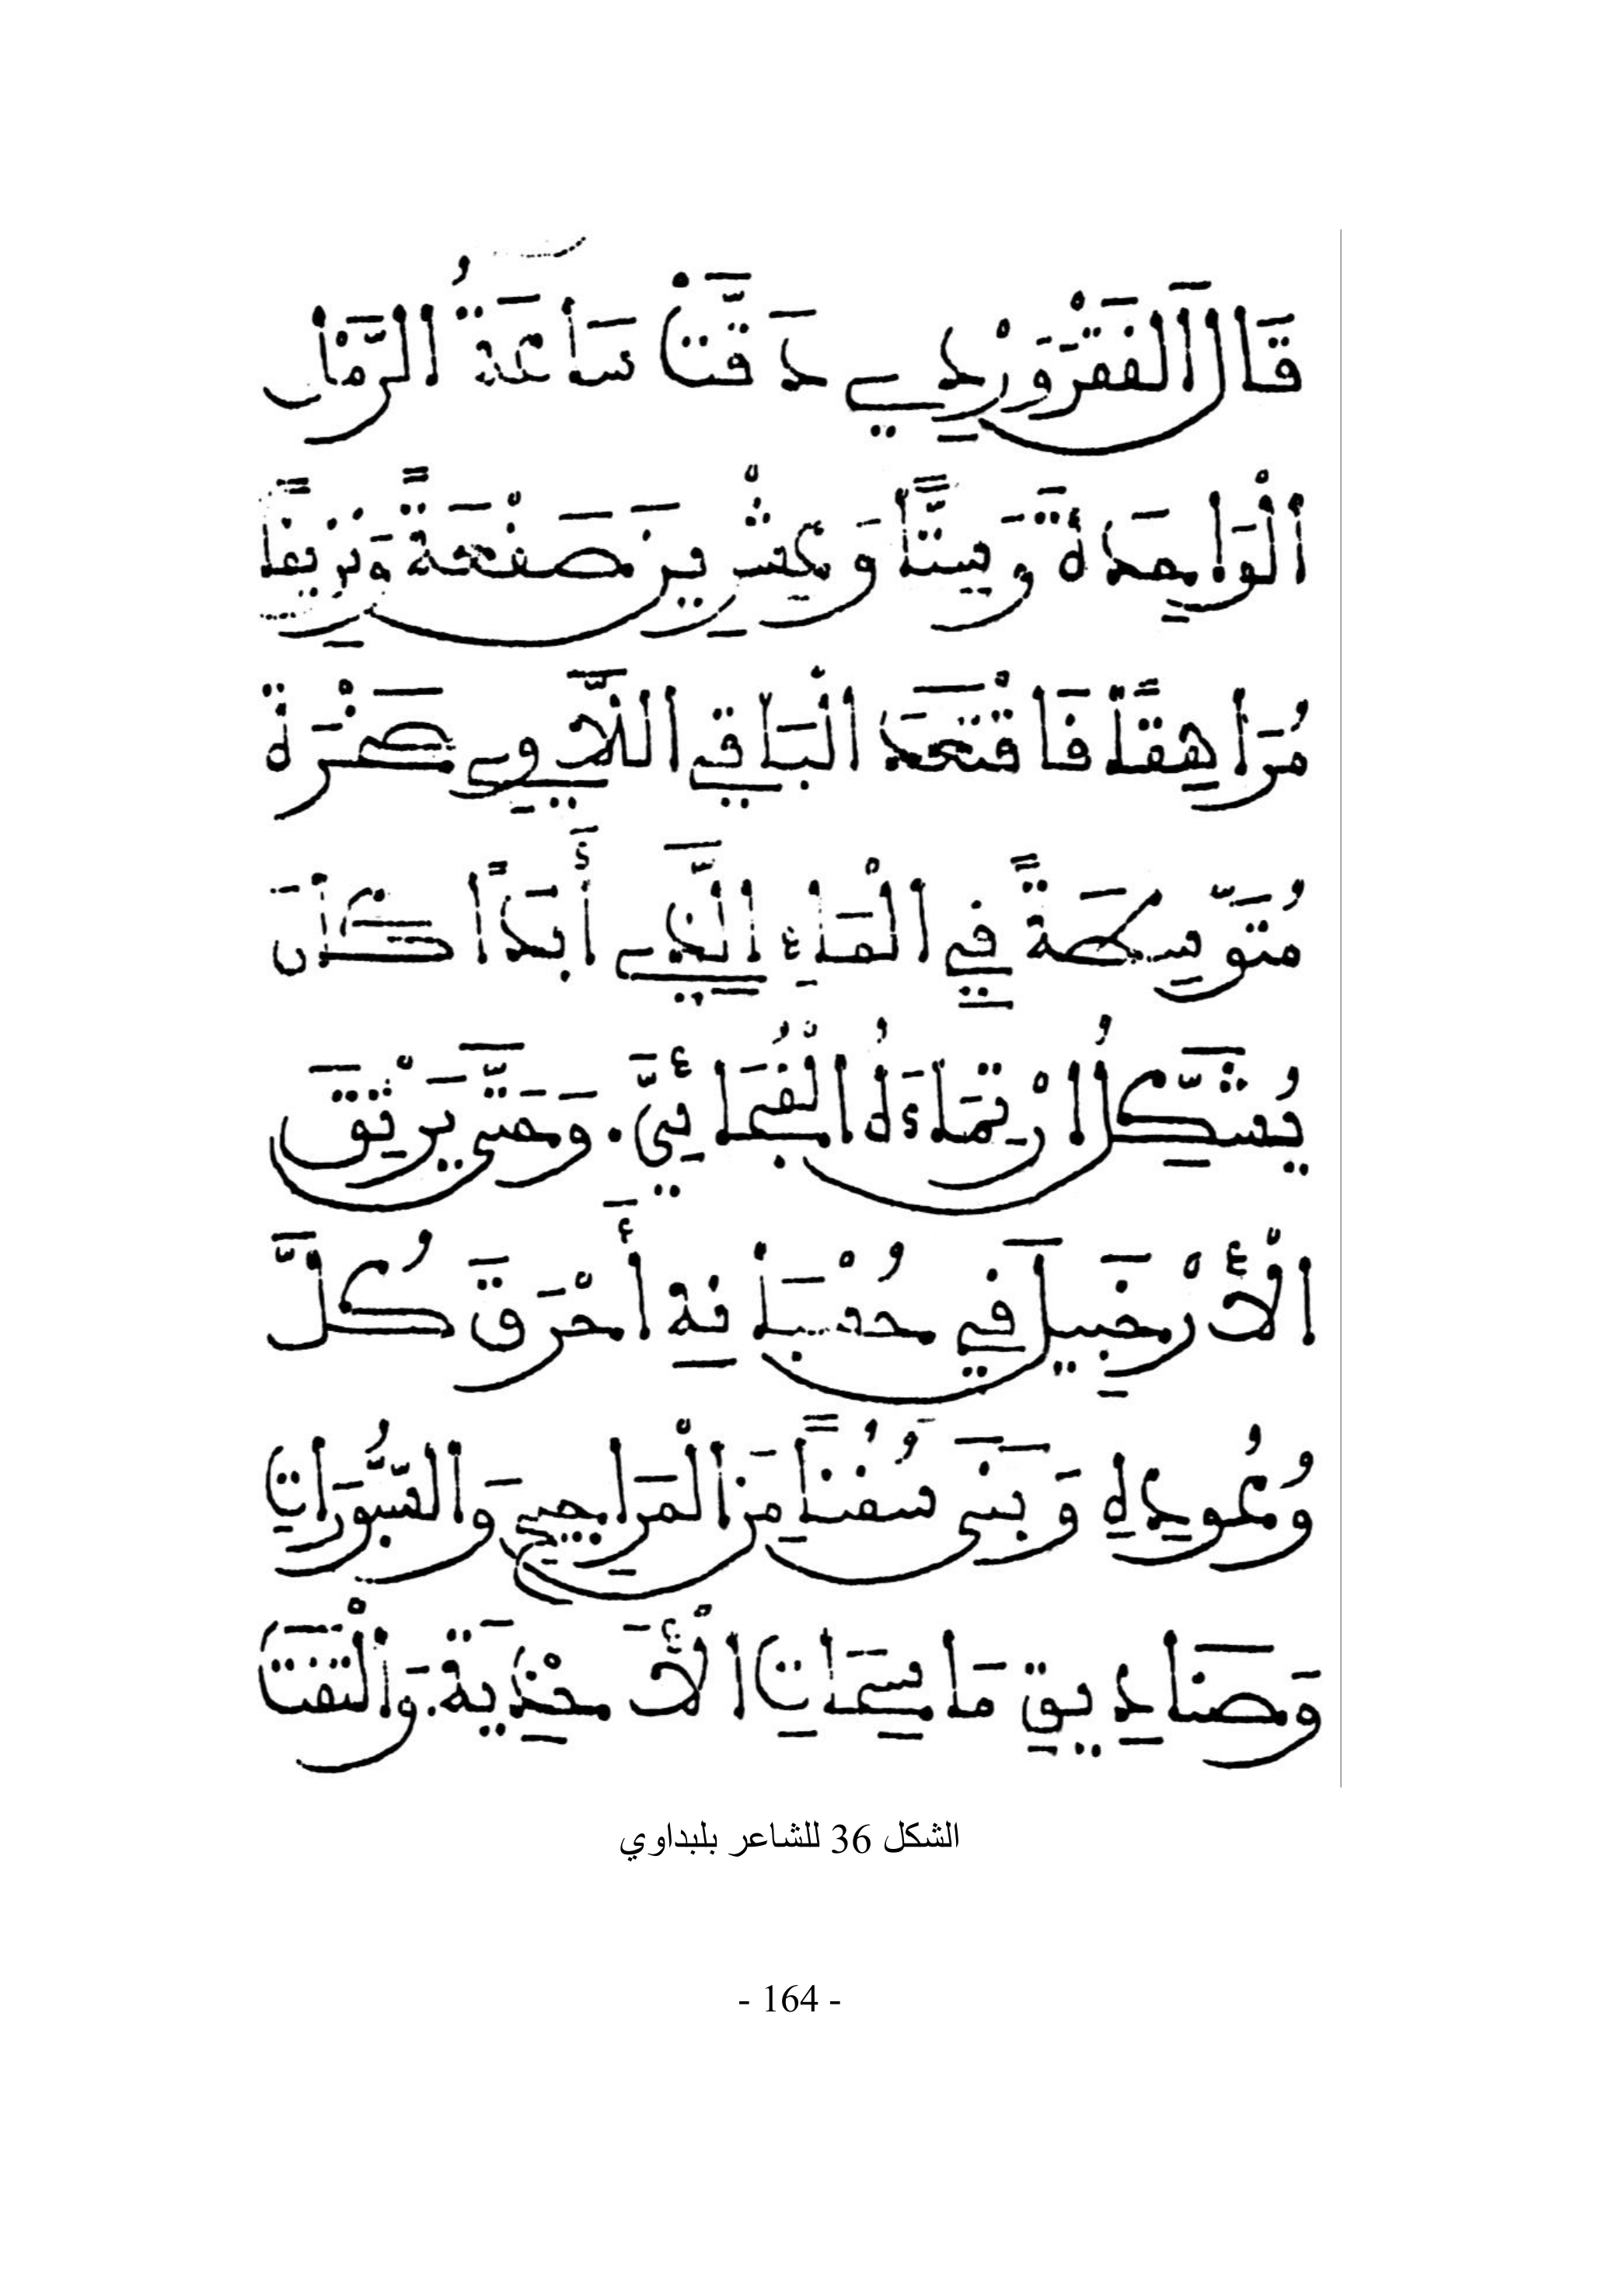 قَالَ الْفَقْرَوَرْدِي دَقَّتْ سَاعَةُ الرَّمْلِ
الْوَاحِدَةَ وَسِتًّا وَعِشْرِينَ صَفْعَةً وَنَزِيفًا
مُرَاهِقًا فَاقْتَعَدَ الْبَاقِي اللَّاوِي صَخْرَة
مُتَوَسِّطَةً فِي الْمَاءِ الَّذِي أَبَدًا كَانَ
يُشَكِّلُ ارْتِمَاءَهُ الْفُجَائِيَّ. وَحَتَّى يَرْتِقَ
الْأَرْخَبِيلَ فِي حُسْبَانِهِ أَحْرَقَ كُلَّ
وُعُودِهِ وَبَنَى سُفُنًا مِنَ الْمَرَاجِيحِ وَالسَّبُّورَاتِ
وَصَنَادِيقِ مَاسِحَاتِ الْأَحْذِيَةِ. وَالْتَفَتَ
الشكل 36 للشاعر بلبداوي
- 164 -